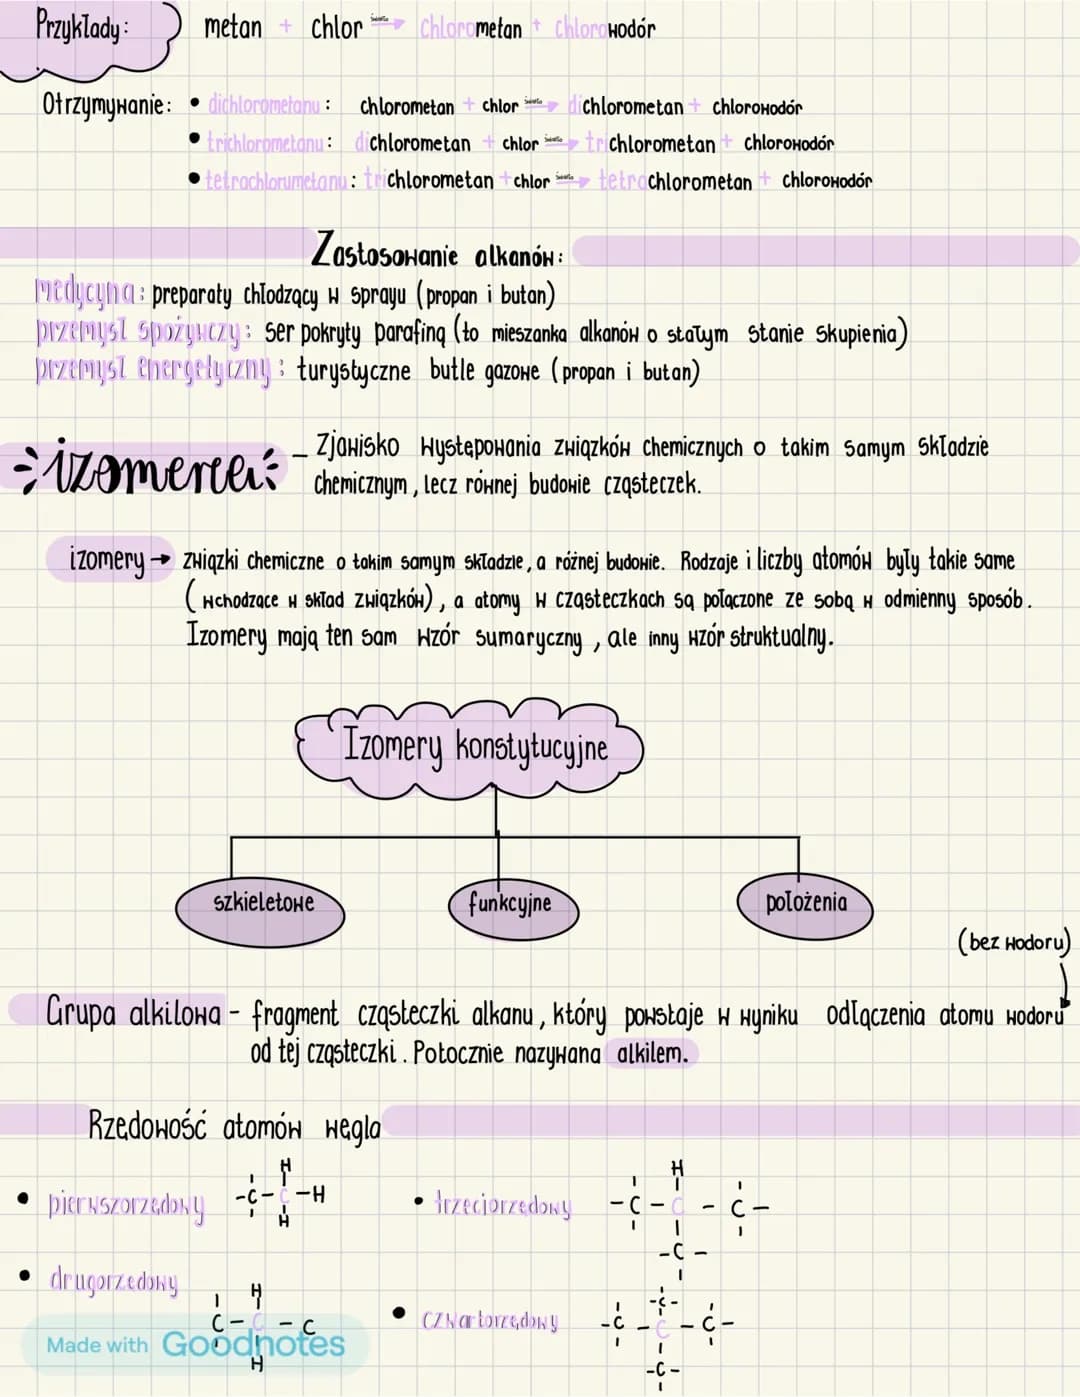 Przykłady: metan + chlor światło → chlorometan + chlorowodór
Otrzymywanie: • dichlorometanu: chlorometan + chlor światło → dichlorometan + chlorowodór
• trichlorometanu: dichlorometan + chlor światło → trichlorometan + chlorowodór
• tetrachlorumetanu: trichlorometan + chlor światło → tetrachlorometan + chlorowodór
Zastosowanie alkanów:
medycyna: preparaty chłodzący w sprayu (propan i butan)
przemysł spożywczy: ser pokryty parafiną (to mieszanka alkanów o stałym stanie skupienia)
przemysł energetyczny: turystyczne butle gazowe (propan i butan)
izomeria – Zjawisko występowania związków chemicznych o takim samym składzie
chemicznym, lecz równej budowie cząsteczek.
izomery → związki chemiczne o takim samym składzie, a różnej budowie. Rodzaje i liczby atomów były takie same
(wchodzące w skład związków), a atomy w cząsteczkach są połączone ze sobą w odmienny sposób.
Izomery mają ten sam wzór sumaryczny, ale inny wzór struktualny.
Izomery konstytucyjne
szkieletowe funkcyjne położenia
(bez wodoru)
Grupa alkilowa - fragment cząsteczki alkanu, który powstaje w wyniku odłączenia atomu wodoru
od tej cząsteczki. Potocznie nazywana alkilem.
Rzędowość atomów węgla
H H
• pierwszorzędowy -C-C-H • trzeciorzędowy -C-C-C-
H -C-
• drugorzędowy H -C-
C-C-C • czwartorzędowy -C-C-C-
Made with Goodnotes
H -C-